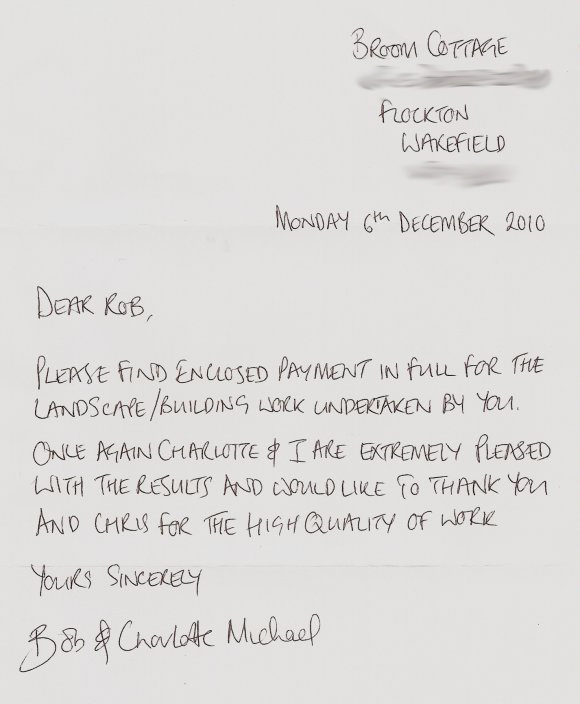 BROOM COTTAGE
FLOCKTON
WAKEFIELD
MONDAY 6th DECEMBER 2010
DEAR ROB,
PLEASE FIND ENCLOSED PAYMENT IN FULL FOR THE
LANDSCAPE/BUILDING WORK UNDERTAKEN BY YOU.
ONCE AGAIN CHARLOTTE & I ARE EXTREMELY PLEASED
WITH THE RESULTS AND WOULD LIKE TO THANK YOU
AND CHRIS FOR THE HIGH QUALITY OF WORK
YOURS SINCERELY
Bob & Charlotte Michael